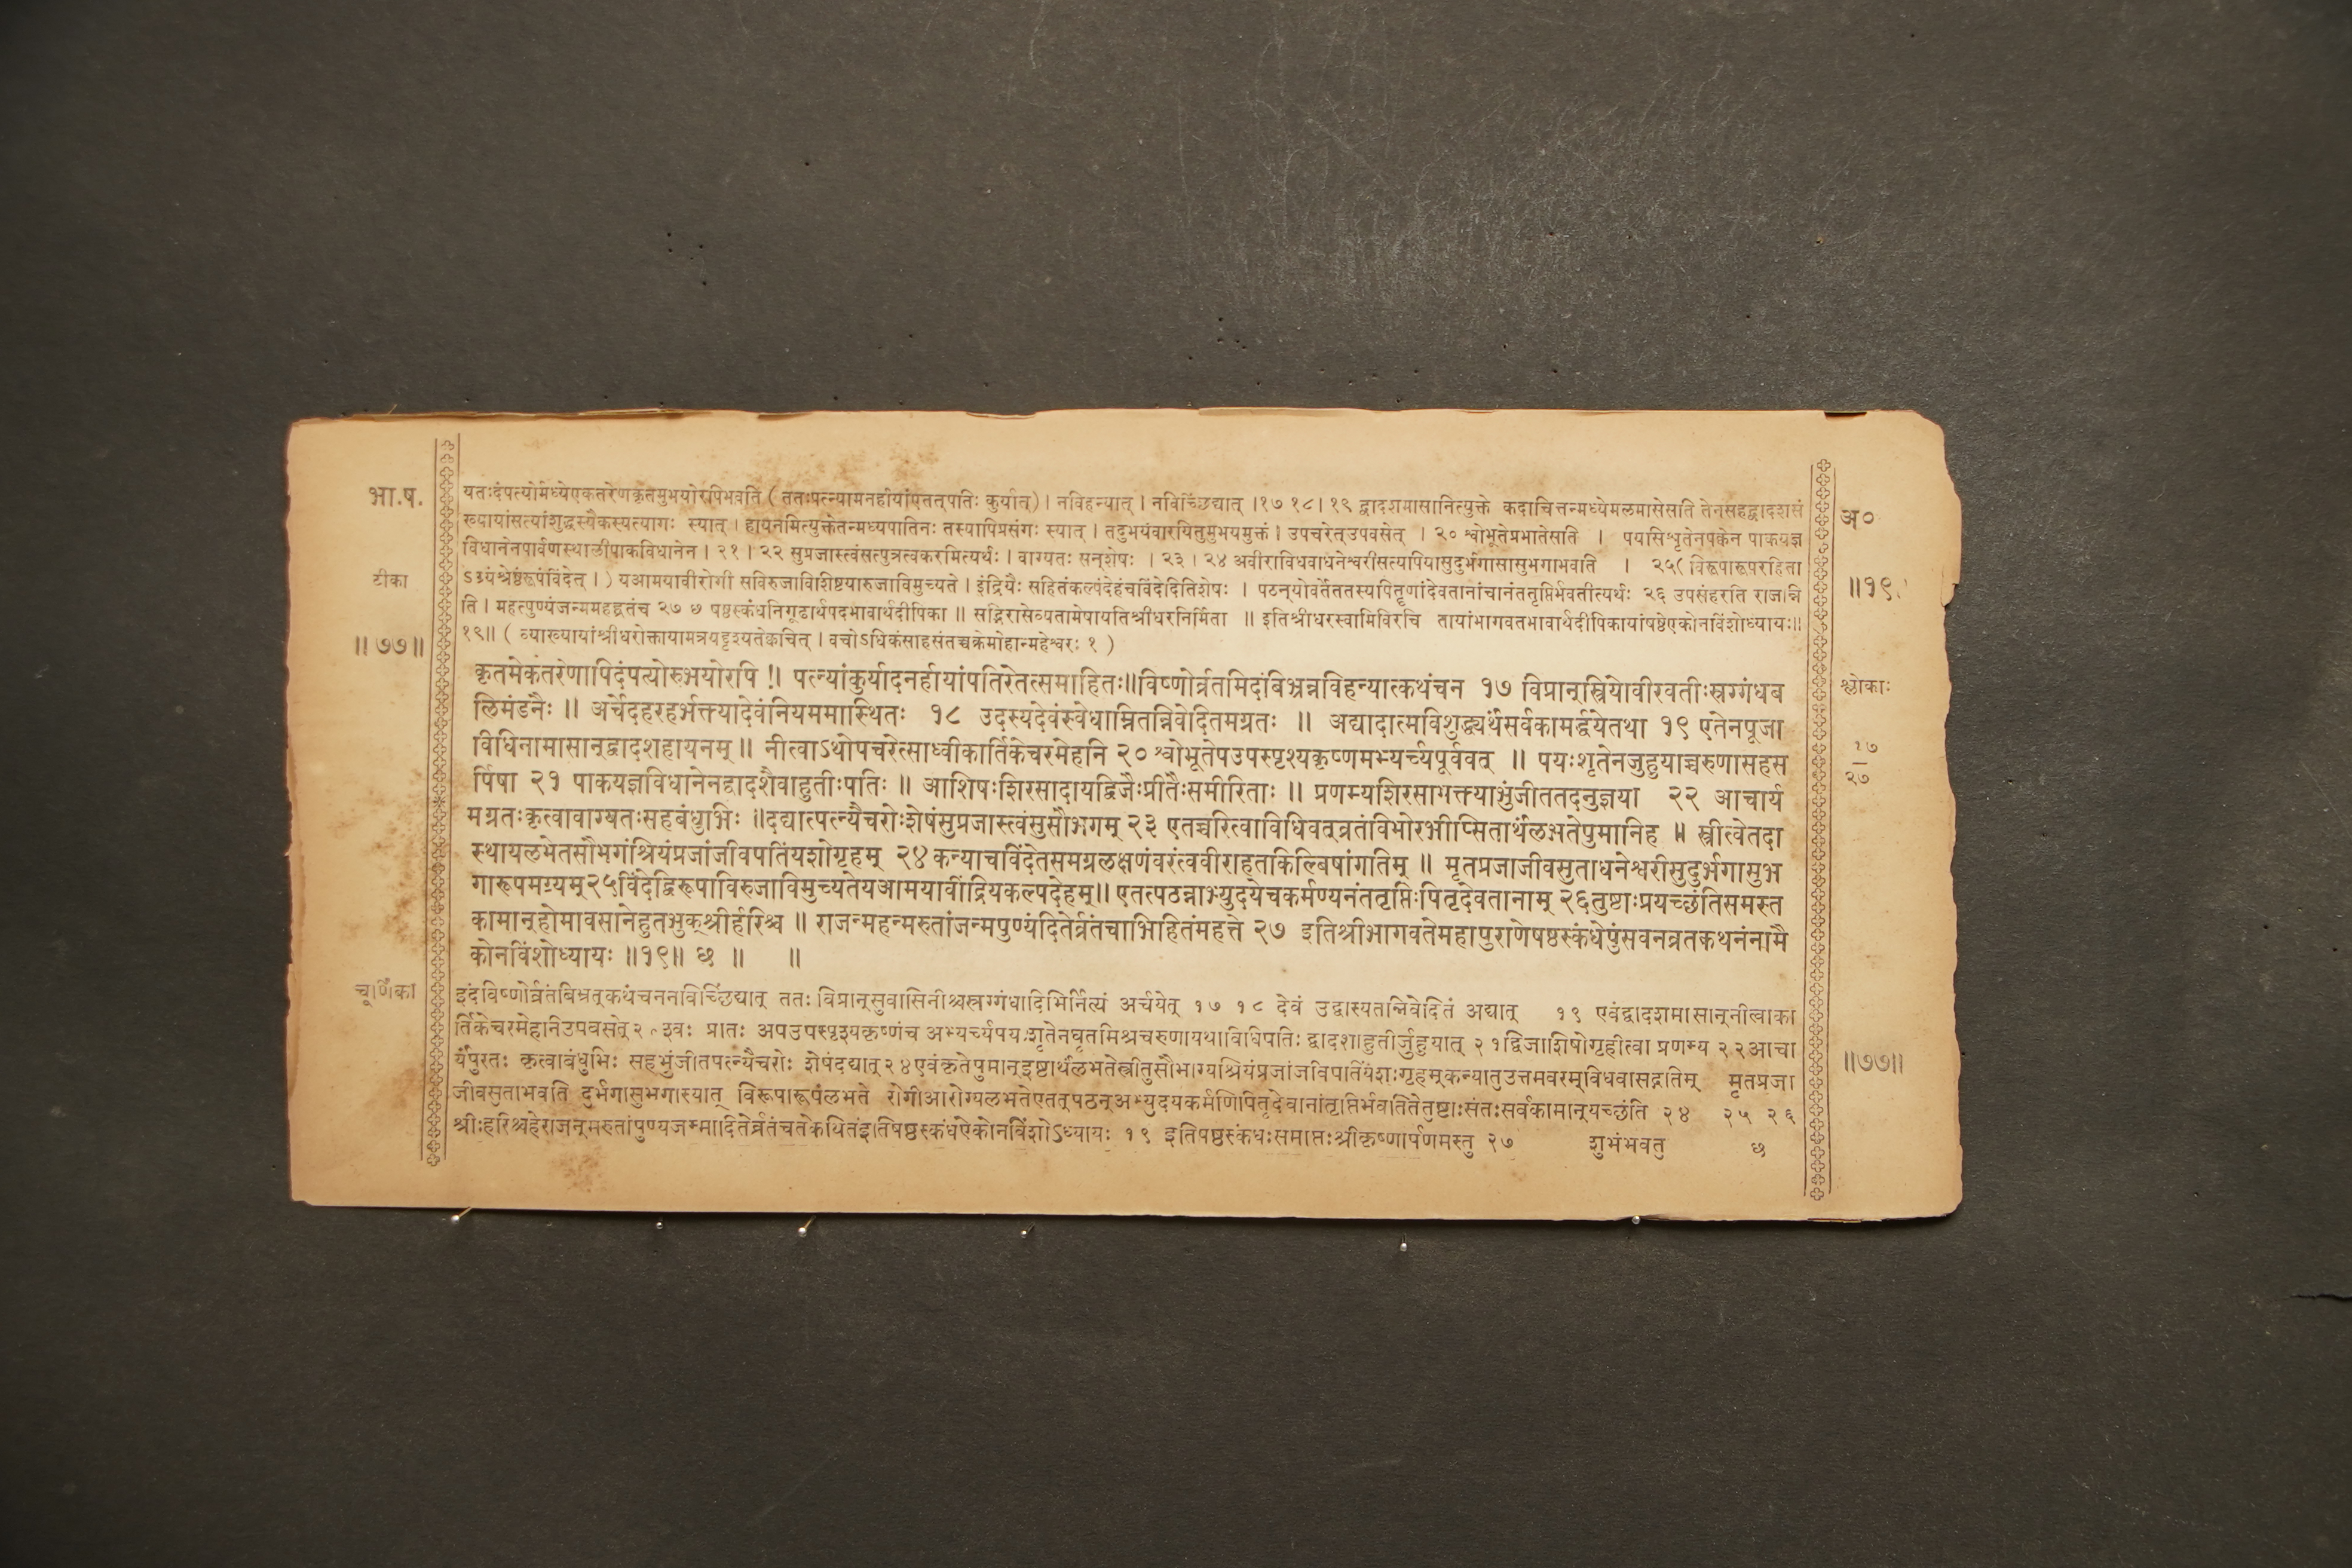 भा.ष.
टीका
॥७७॥
यतःदंपत्योर्मध्येएकतरेणकृतमुभयोरपिभवति ( ततःपत्न्यामनर्हायांएतत्पतिः कुर्यात्) । नविहन्यात् । नविच्छिंद्यात् ।१७ १८। १९ द्वादशमासानित्युक्ते कदाचित्तन्मध्येमलमासेसति तेनसहद्वादशसं
ख्यायांसत्यांशुद्धस्यैकस्यत्यागः स्यात् । हायनमित्युक्तेतन्मध्यपातिनः तस्यापिप्रसंगः स्यात् । तदुभयंवारयितुमुभयमुक्तं । उपचरेत्उपवसेत् । २० श्वोभूतेप्रभातेसति । पयसिशृतेनपक्वेन पाकयज्ञ
विधानेनपार्वणस्थालीपाकविधानेन । २१ । २२ सुप्रजास्त्वंसत्पुत्रत्वकरमित्यर्थः । वाग्यतः सन्शेषः । २३ । २४ अवीराविधवाधनेश्वरीसत्यपियासुदुर्भगासासुभगाभवति । २५( विरूपारूपरहिता
ऽग्र्यंश्रेष्ठंरूपंविंदेत् । ) यआमयावीरोगी सविरुजाविशिष्टयारुजाविमुच्यते । इंद्रियैः सहितंकल्पंदेहंचविंदेदितिशेषः । पठन्योवर्तेततस्यपितॄणांदेवतानांचानंततृप्तिर्भवतीत्यर्थः २६ उपसंहरति राजन्नि
ति । महत्पुण्यंजन्ममहद्व्रतंच २७ छ षष्ठस्कंधनिगूढार्थपदभावार्थदीपिका ॥ सद्भिरासेव्यतामेषायतिश्रीधरनिर्मिता ॥ इतिश्रीधरस्वामिविरचि तायांभागवतभावार्थदीपिकायांषष्ठेएकोनविंशोध्यायः॥
१९॥ ( व्याख्यायांश्रीधरोक्तायामत्रयद्दृश्यतेक्वचित् । वचोऽधिकंसाहसंतच्चक्रेमोहान्महेश्वरः १ )
कृतमेकतरेणापिदंपत्योरुभयोरपि ॥ पत्न्यांकुर्यादनर्हायांपतिरेतत्समाहितः॥विष्णोर्व्रतमिदंबिभ्रन्नविहन्यात्कथंचन १७ विप्रान्स्त्रियोवीरवतीःस्रग्गंधब
लिमंडनैः ॥ अर्चेदहरहर्भक्त्यादेवंनियममास्थितः १८ उदस्यदेवंस्वेधाम्नितन्निवेदितमग्रतः ॥ अद्यादात्मविशुद्ध्यर्थंसर्वकामर्द्धयेतथा १९ एतेनपूजा
विधिनामासान्द्वादशहायनम् ॥ नीत्वाऽथोपचरेत्साध्वीकार्तिकेचरमेहनि २० श्वोभूतेपउपस्पृश्यकृष्णमभ्यर्च्यपूर्ववत् ॥ पयःशृतेनजुहुयाच्चरुणासहस
र्पिषा २१ पाकयज्ञविधानेनद्वादशैवाहुतीःपतिः ॥ आशिषःशिरसादायद्विजैःप्रीतैःसमीरिताः ॥ प्रणम्यशिरसाभक्त्याभुंजीततदनुज्ञया २२ आचार्य
मग्रतःकृत्वावाग्यतःसहबंधुभिः ॥दद्यात्पत्न्यैचरोःशेषंसुप्रजास्त्वंसुसौभगम् २३ एतच्चरित्वाविधिवत्व्रतंविभोरभीप्सितार्थंलभतेपुमानिह ॥ स्त्रीत्वेतदा
स्थायलभेतसौभगंश्रियंप्रजांजीवपतिंयशोगृहम् २४ कन्याचविंदेतसमग्रलक्षणंवरंत्ववीराहतकिल्बिषांगतिम् ॥ मृतप्रजाजीवसुताधनेश्वरीसुदुर्भगासुभ
गारूपमग्र्यम्२५विंदेद्विरूपाविरुजाविमुच्यतेयआमयावींद्रियकल्पदेहम्॥ एतत्पठन्नाभ्युदयेचकर्मण्यनंततृप्तिःपितृदेवतानाम् २६तुष्टाःप्रयच्छंतिसमस्त
कामान्होमावसानेहुतभुक्श्रीर्हरिश्च ॥ राजन्महन्मरुतांजन्मपुण्यंदितेर्व्रतंचाभिहितंमहत्ते २७ इतिश्रीभागवतेमहापुराणेषष्ठस्कंधेपुंसवनव्रतकथनंनामै
कोनविंशोध्यायः ॥१९॥ छ ॥ ॥
चूर्णिका
इदंविष्णोर्व्रतंबिभ्रत्कथंचननविच्छिंद्यात् ततः विप्रान्सुवासिनीश्चस्रग्गंधादिभिर्नित्यं अर्चयेत् १७ १८ देवं उद्वास्यतन्निवेदितं अद्यात् १९ एवंद्वादशमासान्नीत्वाका
र्तिकेचरमेहनिउपवसेत् २० श्वः प्रातः अपउपस्पृश्यकृष्णंच अभ्यर्च्यपयःशृतेनघृतमिश्रचरुणायथाविधिपतिः द्वादशाहुतीर्जुहुयात् २१द्विजाशिषोगृहीत्वा प्रणम्य २२आचा
र्यंपुरतः कृत्वाबंधुभिः सहभुंजीतपत्न्यैचरोः शेषंदद्यात्२४एवंकृतेपुमान्इष्टार्थंलभतेस्त्रीतुसौभाग्यश्रियंप्रजांजीवपतिंयशःगृहम्कन्यातुउत्तमवरम्विधवासद्गतिम् मृतप्रजा
जीवसुताभवति दुर्भगासुभगास्यात् विरूपारूपंलभते रोगीआरोग्यंलभतेएतत्पठन्अभ्युदयकर्मणिपितृदेवानांतृप्तिर्भवतितेतुष्टाःसंतःसर्वकामान्यच्छंति २४ २५ २६
श्रीःहरिश्चहेराजन्मरुतांपुण्यजन्मदितेर्व्रतंचतेकथितंइतिषष्ठस्कंधेऐकोनविंशोऽध्यायः १९ इतिषष्ठस्कंधःसमाप्तःश्रीकृष्णार्पणमस्तु २७ शुभंभवतु छ
अ०
॥१९
श्लोकाः
१७
२७
॥७७॥